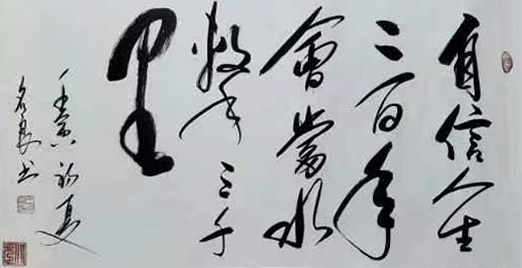 自信人生
二百年
會當水
擊三千
里
壬寅初夏
书